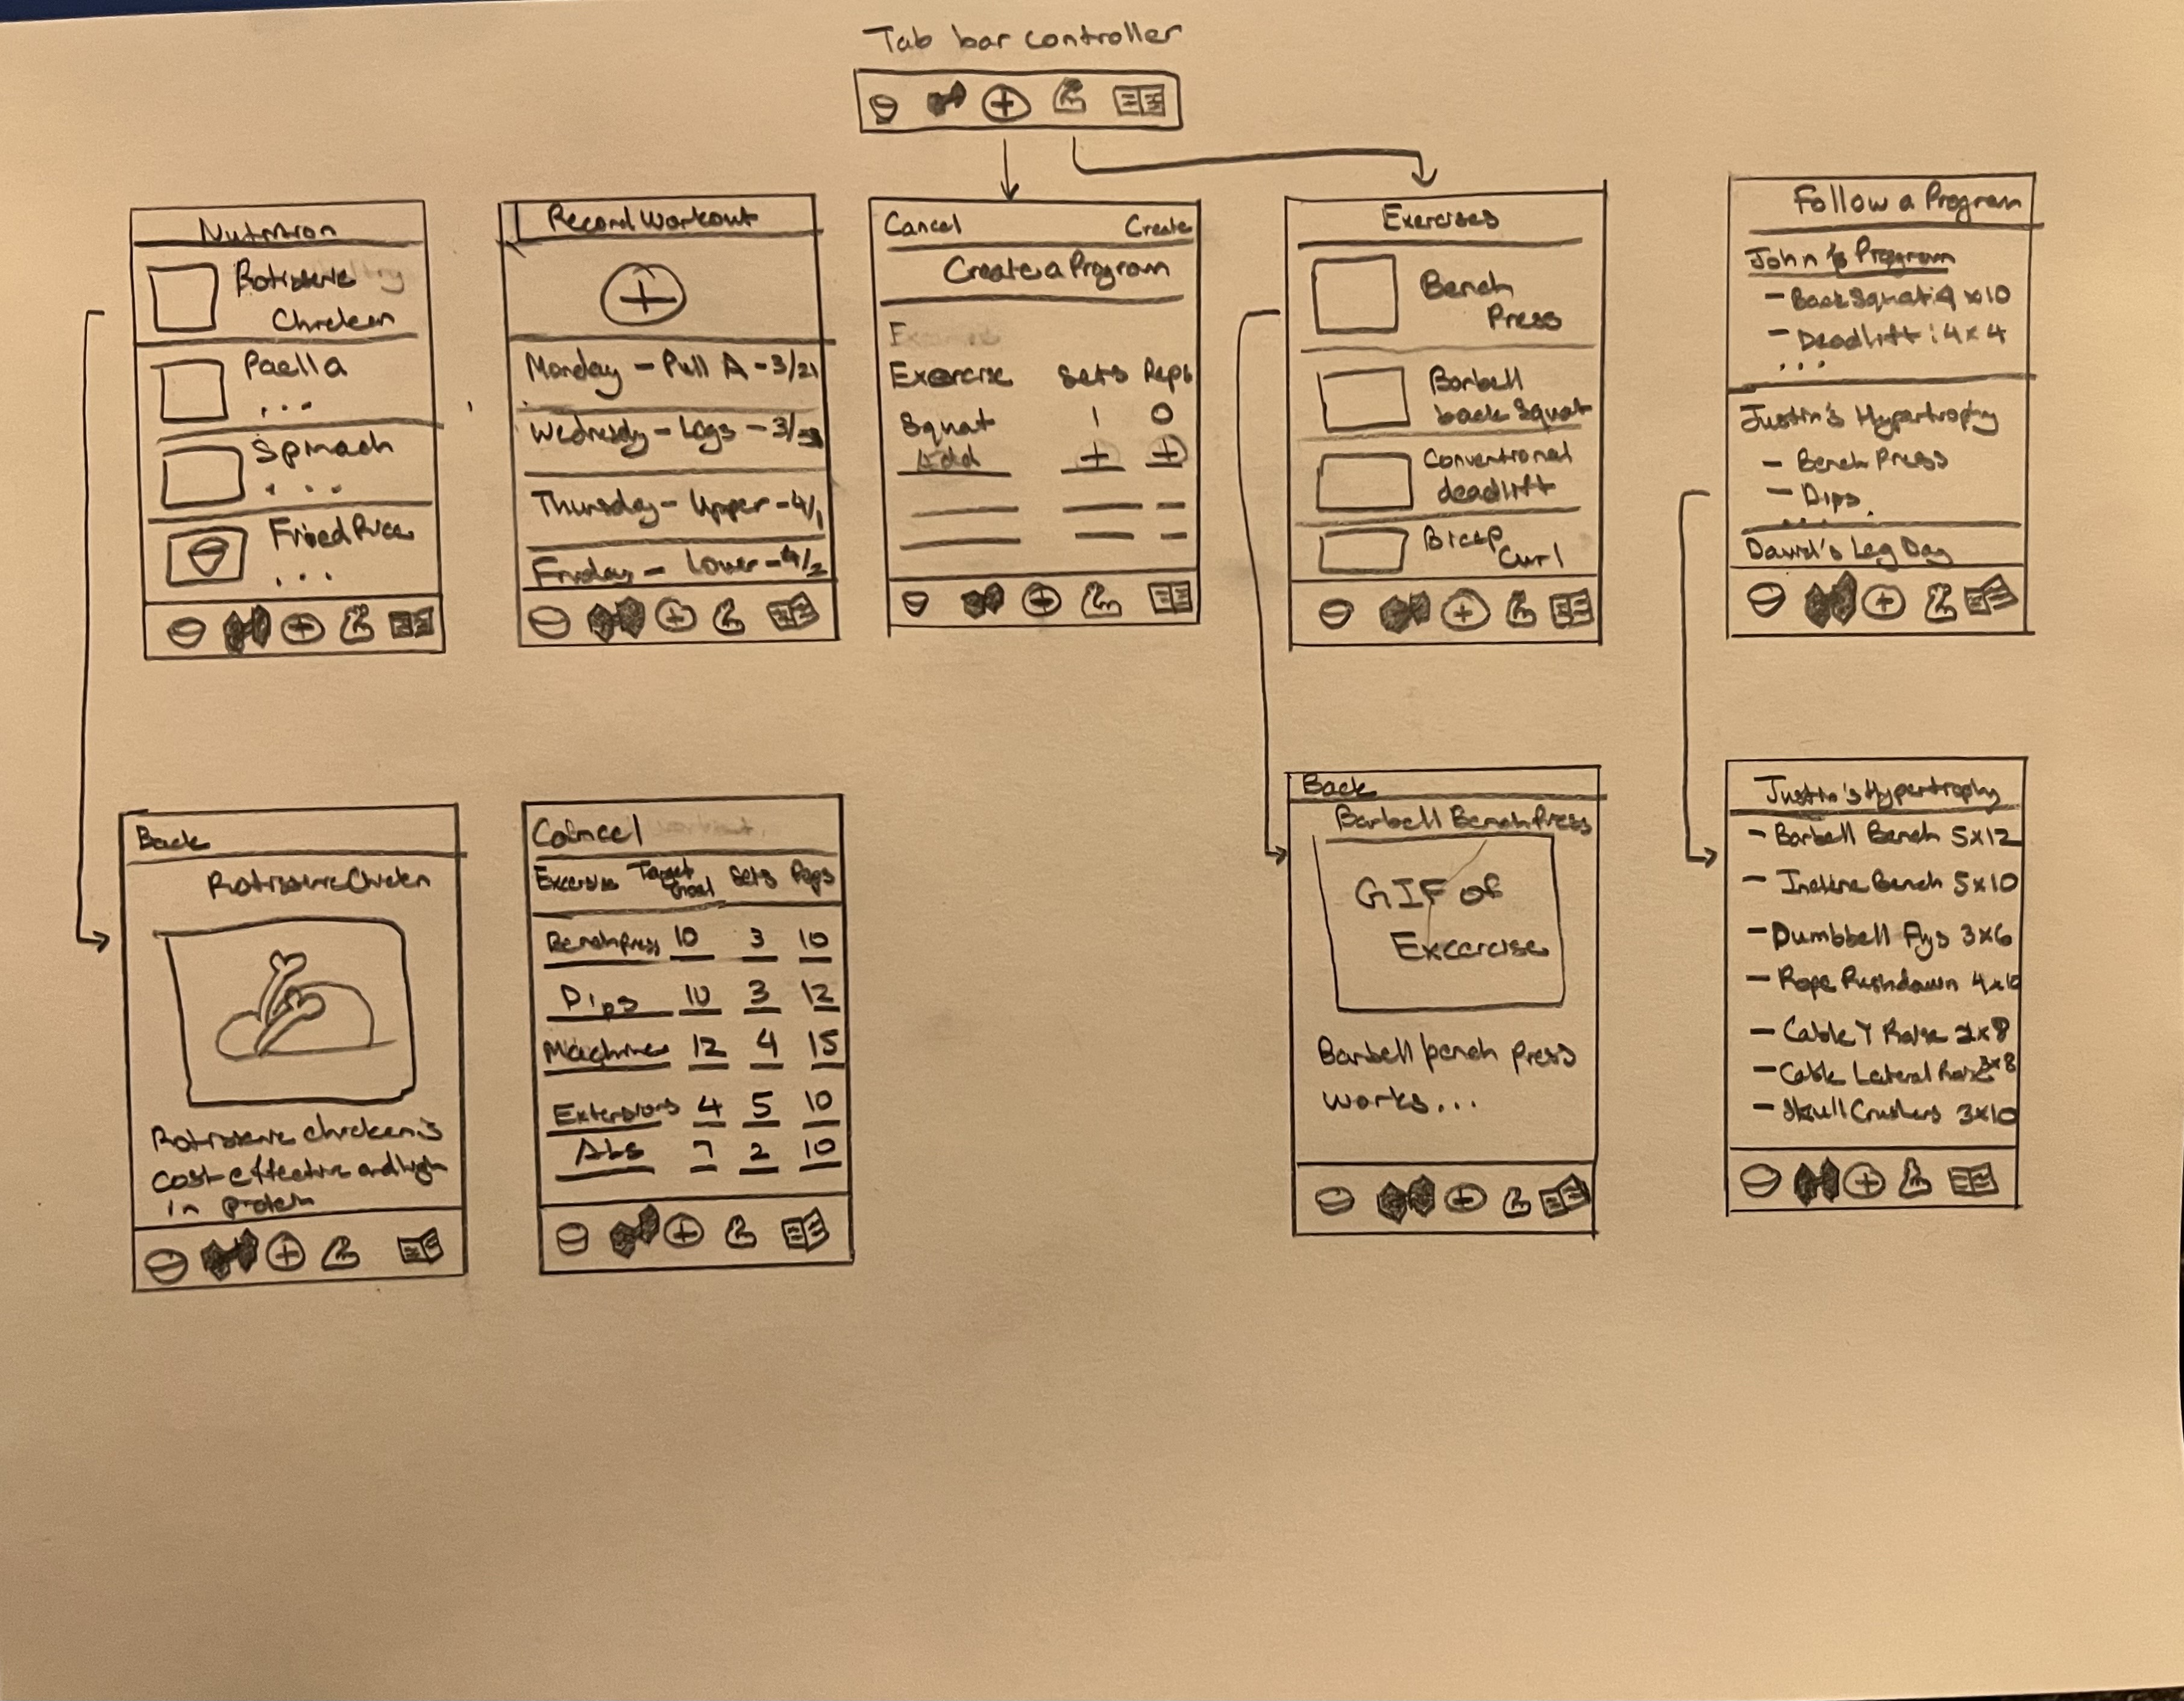 Tab bar controller
Nutrition
Rotisserie
Chicken
Paella
...
Spinach
...
Fried Rice
...
Record Workout
Monday - Pull A - 3/21
Wednesday - Legs - 3/
Thursday - Upper - 4/1
Friday - Lower - 4/2
Cancel Create
Create a Program
Exercise Sets Reps
Squat 1 0
Add + +
Exercises
Bench
Press
Barbell
back Squat
Conventional
deadlift
Bicep
Curl
Follow a Program
John's Program
- Back Squat: 4 x 10
- Deadlift: 4 x 4
...
Justin's Hypertrophy
- Bench Press
- Dips
...
David's Leg Day
Back
Rotisserie Chicken
Rotisserie chicken is
cost effective and high
in protein
Cancel
Excercise Target Goal Sets Reps
Bench Press 10 3 10
Dips 10 3 12
Machine 12 4 15
Extensions 4 5 10
Abs 7 2 10
Back
Barbell Bench Press
GIF of
Excercise
Barbell bench press
works...
Justin's Hypertrophy
- Barbell Bench 5x12
- Incline Bench 5x10
- Dumbbell Flys 3x6
- Rope Pushdown 4x10
- Cable Y Raise 2x8
- Cable Lateral Raise 3x8
- Skull Crushers 3x10